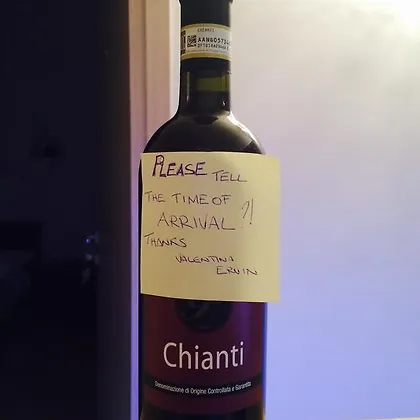 AANG0573
PLEASE TELL
THE TIME OF
ARRIVAL ?!
THANKS
VALENTINA
ERVIN
Chianti
Denominazione di Origine Controllata e Garantita